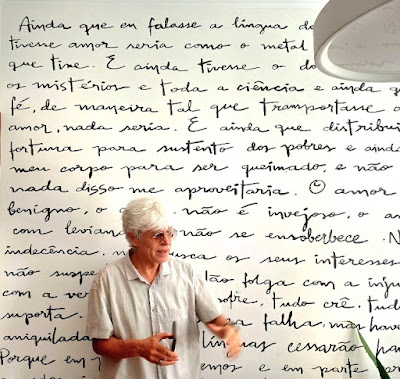 Ainda que eu falasse a língua do
tivesse amor seria como o metal
que tine. E ainda tivesse o do
os mistérios e toda a ciência e ainda q
fé, de maneira tal que transportasse o
amor, nada seria. E ainda que distribui
fortuna para sustento dos pobres e aind
meu corpo para ser queimado, e não
nada disso me aproveitaria. O amor
benigno, o a não é invejoso, o a
com levian não se ensoberbece. N
indecência, n usca os seus interesses
não suspe ão folga com a inju
com a ve ofre, tudo crê, tud
suporta. a falha, mas hav
aniquilada línguas cessarão ha
Porque em p emos e em parte p